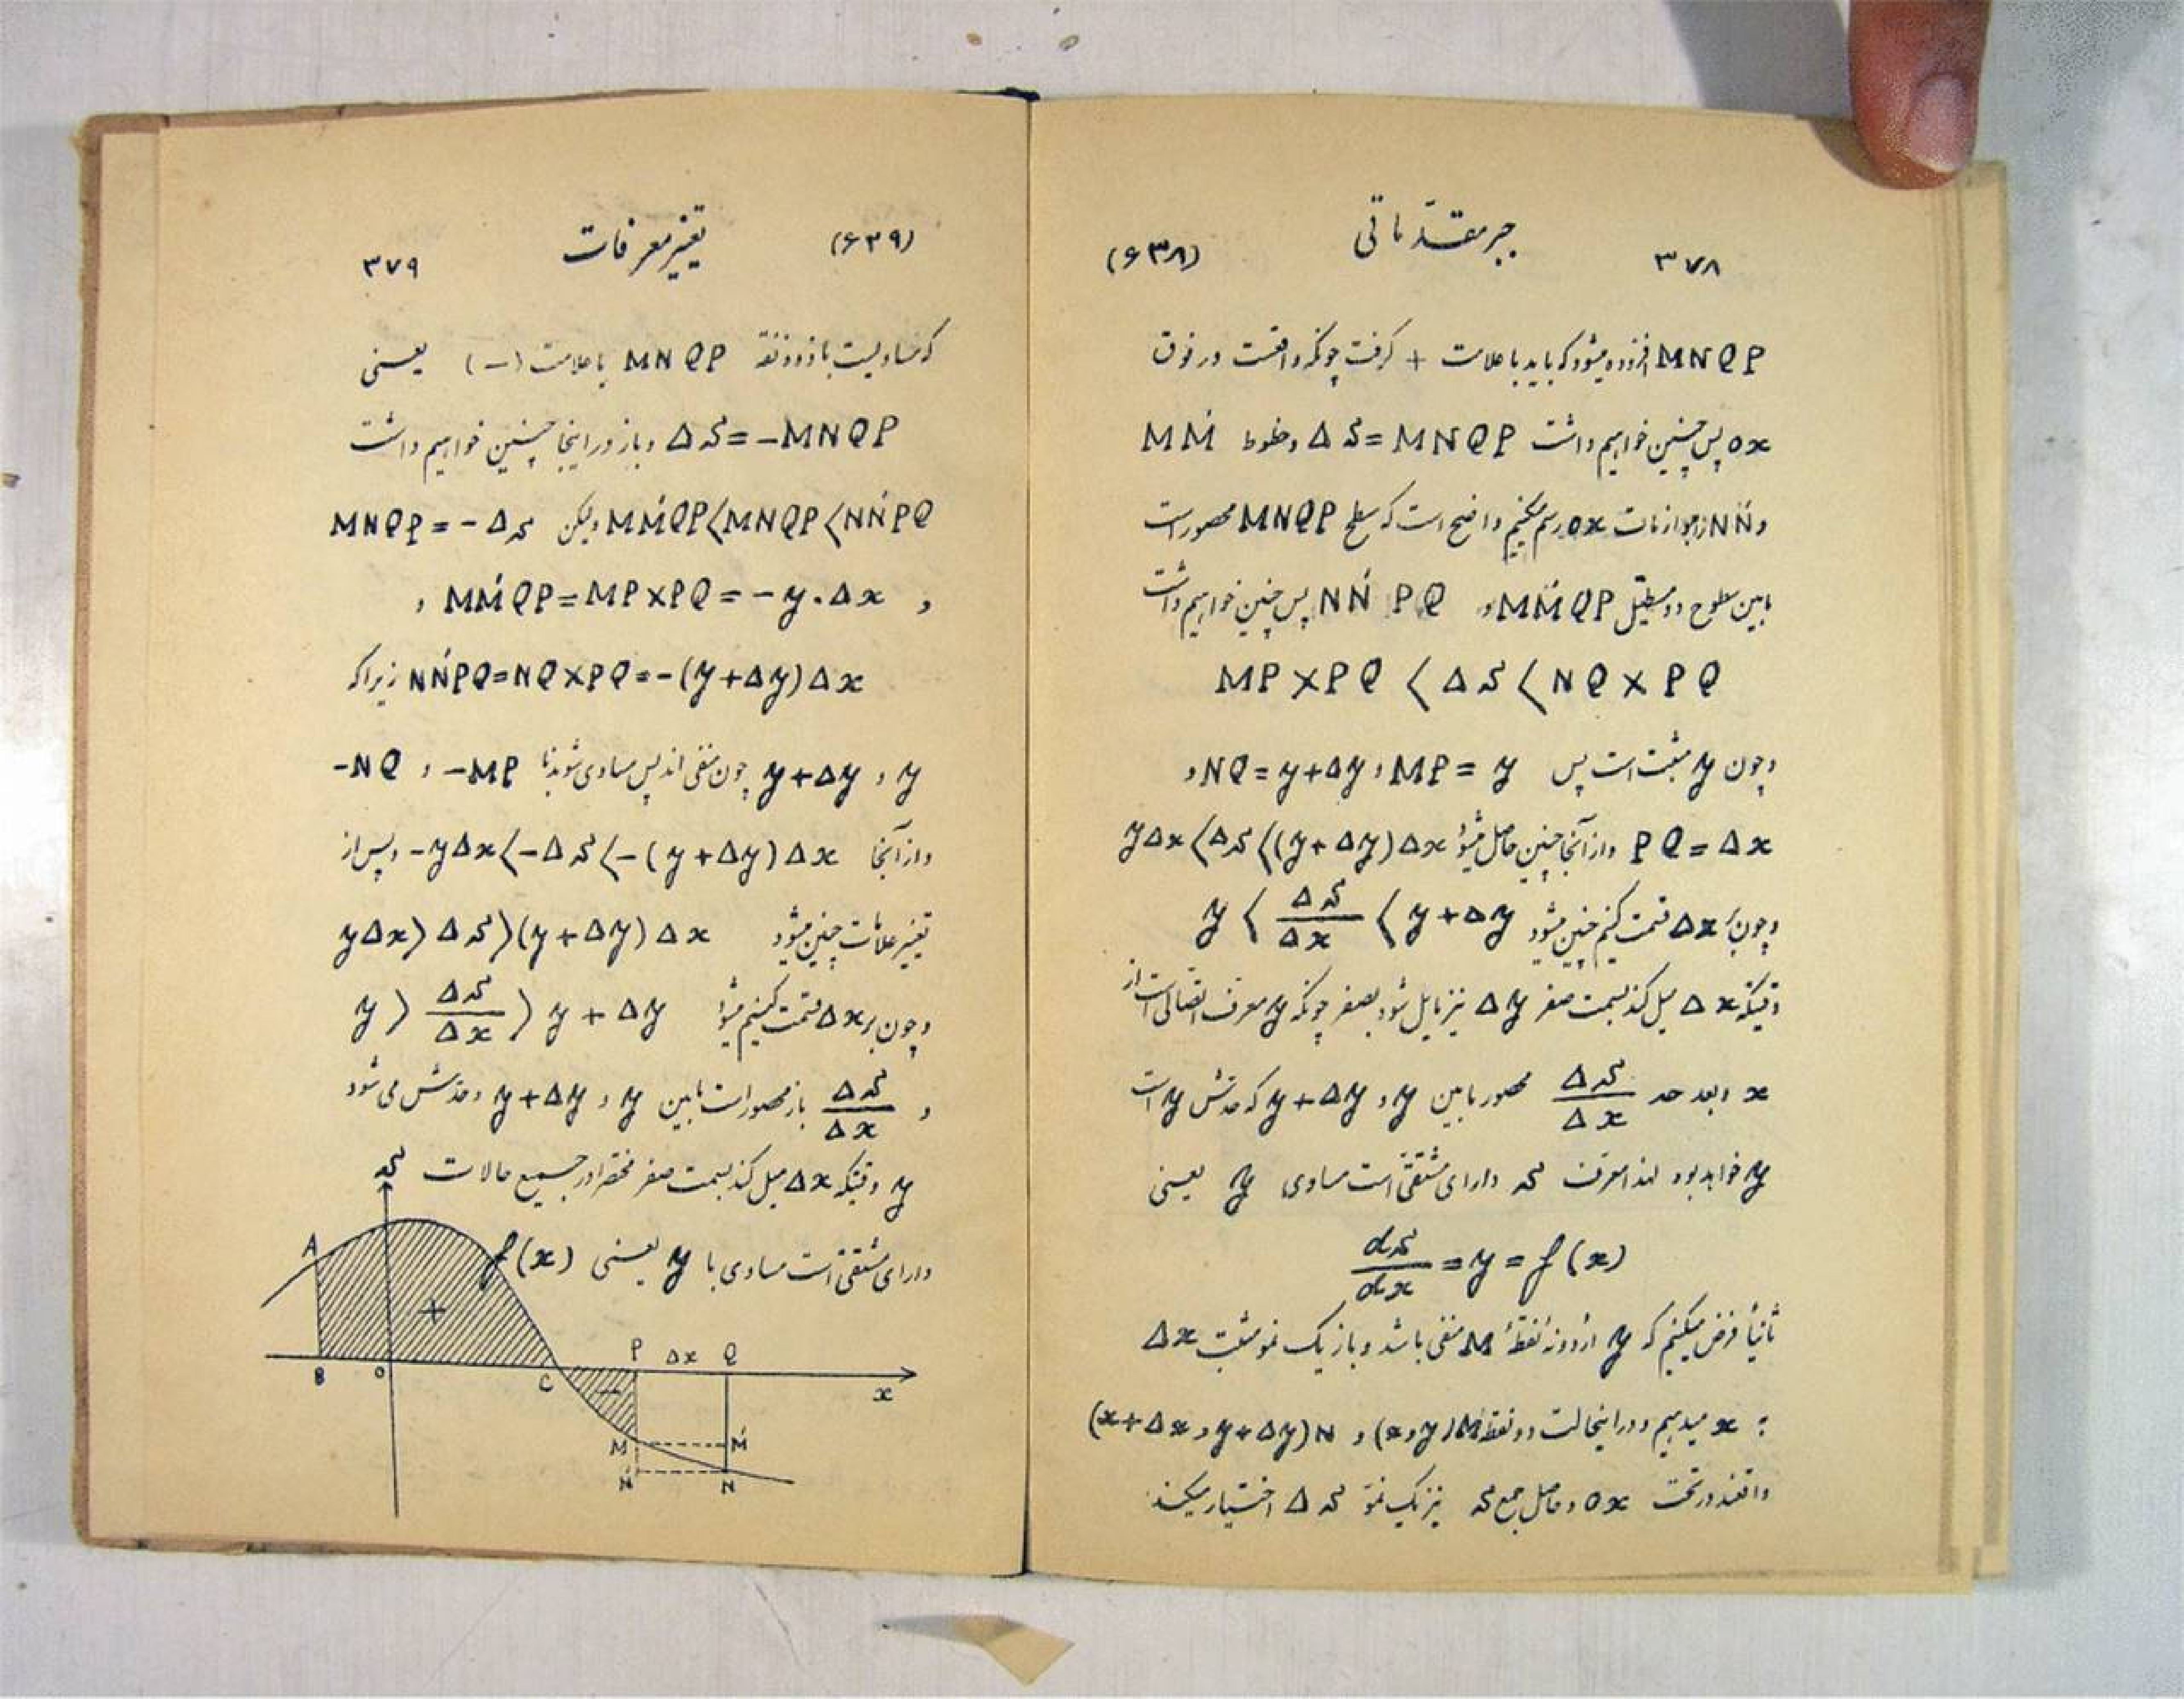 ۳۷۸ جبر مقدّماتی (۶۳۸)
MNQP افزوده میشود که باید با علامت + گرفت چونکه واقعست در فوق
ox پس چنین خواهیم داشت Δسحہ=MNQP وخطوط MḾ
و NŃ را بموازات ox رسم میکنیم واضح است که سطح MNQP محصور است
مابین سطوح دو مستطیل MḾQP و NŃPQ پس چنین خواهیم داشت
MP×PQ⟨Δسحہ⟨NQ×PQ
وچون y مثبت است پس MP=y و NQ=y+Δy و
PQ=Δx واز آنجا چنین حاصل میشود yΔx⟨Δسحہ⟨(y+Δy)Δx
وچون بر Δx قسمت کنیم چنین میشود y⟨Δسحہ/Δx⟨y+Δy
وقتیکه Δx میل کند بسمت صفر Δy نیز مایل شود بصفر چونکه y معرف اتصالی است از
x وبعد حد Δسحہ/Δx محصور مابین y و y+Δy که حدش y است
y خواهد بود لهذا معرف سحہ دارای مشتقی است مساوی y یعنی
dسحہ/dx=y=f(x)
ثانیاً فرض میکنیم که y ازدونهٔ نقطهٔ M منفی باشد و باز یک نمو مثبت Δx
به x میدهیم و در اینحالت دو نقطه M(x,y) و N(x+Δx,y+Δy)
واقعند در تحت ox و حاصل جمع سحہ نیز یک نموّ Δسحہ اختیار میکند
(۶۳۹) تغییر معرفات ۳۷۹
که مساویست با ذوذنقه MNQP با علامت (-) یعنی
Δسحہ=-MNQP و باز در اینجا چنین خواهیم داشت
MḾQP⟨MNQP⟨NŃPQ ولیکن MNQP=-Δسحہ
و MḾQP=MP×PQ=-y.Δx و
NŃPQ=NQ×PQ=-(y+Δy)Δx زیرا که
y و y+Δy چون منفی اند پس مساوی شوند با -MP و -NQ
واز آنجا -yΔx⟨-Δسحہ⟨-(y+Δy)Δx و پس از
تغییر علامات چنین میشود yΔx⟩Δسحہ⟩(y+Δy)Δx
وچون بر Δx قسمت کنیم میشود y⟩Δسحہ/Δx⟩y+Δy
و Δسحہ/Δx باز محصور است مابین y و y+Δy و حدش می شود
y وقتیکه Δx میل کند بسمت صفر مختصراً در جمیع حالات سحہ
دارای مشتقی است مساوی با y یعنی f(x)
A
+
B o C P Δx Q x
-
M Ḿ
Ń N